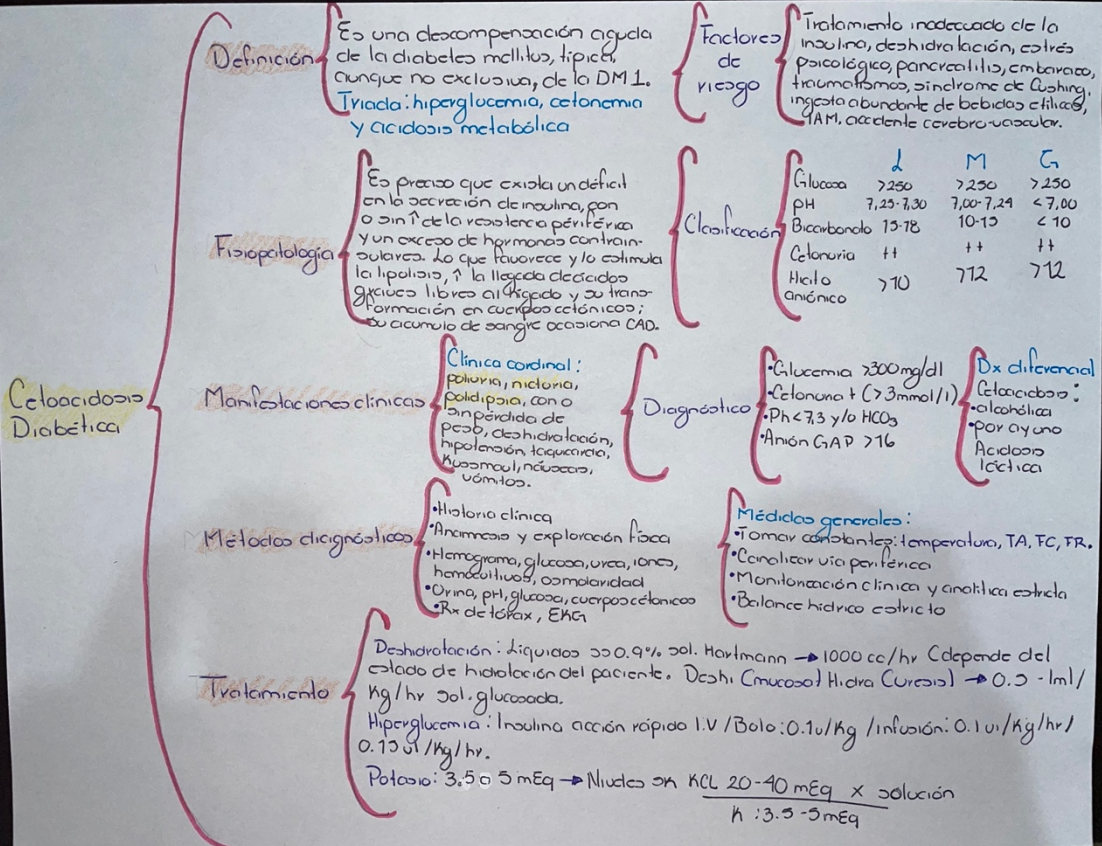 Cetoacidosis
Diabética
Definición
Es una descompensación aguda
de la diabetes mellitus, típica,
aunque no exclusiva, de la DM1.
Triada: hiperglucemia, cetonemia
y acidosis metabólica
Factores
de
riesgo
Tratamiento inadecuado de la
insulina, deshidratación, estrés
psicológico, pancreatitis, embarazo,
traumatismos, síndrome de Cushing,
ingesta abundante de bebidas etílicas,
IAM, accidente cerebro-vascular.
Fisiopatología
Es preciso que exista un déficit
en la secreción de insulina, con
o sin ↑ de la resistencia périférica
y un exceso de hormonas contrain-
sulares. Lo que favorece y/o estimula
la lipolisis, ↑ la llegada de ácidos
grasos libres al hígado y su trans-
formación en cuerpos cetónicos;
su acumulo de sangre ocasiona CAD.
Clasificación
L M G
Glucosa >250 >250 >250
pH 7,25-7,30 7,00-7,24 <7,00
Bicarbonato 15-18 10-15 <10
Cetonuria ++ ++ ++
Hiato >10 >12 >12
aniónico
Manifestaciones clínicas
Clínica cardinal:
poliuria, nicturia,
polidipsia, con o
sin pérdida de
peso, deshidratación,
hipotensión, taquicardia,
Kussmaul, náuseas,
vómitos.
Diagnóstico
•Glucemia >300mg/dl
•Cetonuria + (>3mmol/l)
•Ph<7,3 y/o HCO3
•Anión GAP >16
Dx diferencial
Cetoacidosis:
•alcohólica
•por ayuno
Acidosis
láctica
Métodos diagnósticos
•Historia clínica
•Anamnesis y exploración física
•Hemograma, glucosa, urea, iones,
hemocultivos, osmolaridad
•Orina, pH, glucosa, cuerpos cétonicos
•Rx de tórax, EKG
Médidas generales:
•Tomar constantes: temperatura, TA, FC, FR.
•Canalizar vía periférica
•Monitorización clínica y analítica estricta
•Balance hídrico estricto
Tratamiento
Deshidratación: Líquidos SS0.9% sol. Hartmann → 1000 cc/hr (depende del
estado de hidratación del paciente. Deshi (mucosa) Hidra (uresis) → 0.5-1ml/
Kg/hr sol. glucosada.
Hiperglucemia: Insulina acción rápida I.V /Bolo: 0.1u/Kg /infusión: 0.1 ui/Kg/hr/
0.15 ui/Kg/hr.
Potasio: 3.5 a 5 mEq → Niveles SK KCL 20-40 mEq x solución
K : 3.5-5mEq